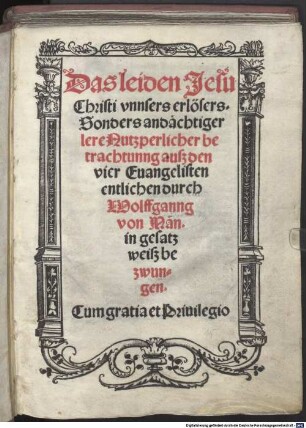 Das leiden Jesu
Christi vnnsers erlösers.
Sonders andächtiger
lere Nutzperlicher be
trachtunng auß den
vier Euangelisten
entlichen durch
Wolffganng
von Män.
in gesatz
weiß be
zwun-
gen.
Cum gratia et Priuilegio
Digitalisierung gefördert durch die Deutsche Forschungsgemeinschaft